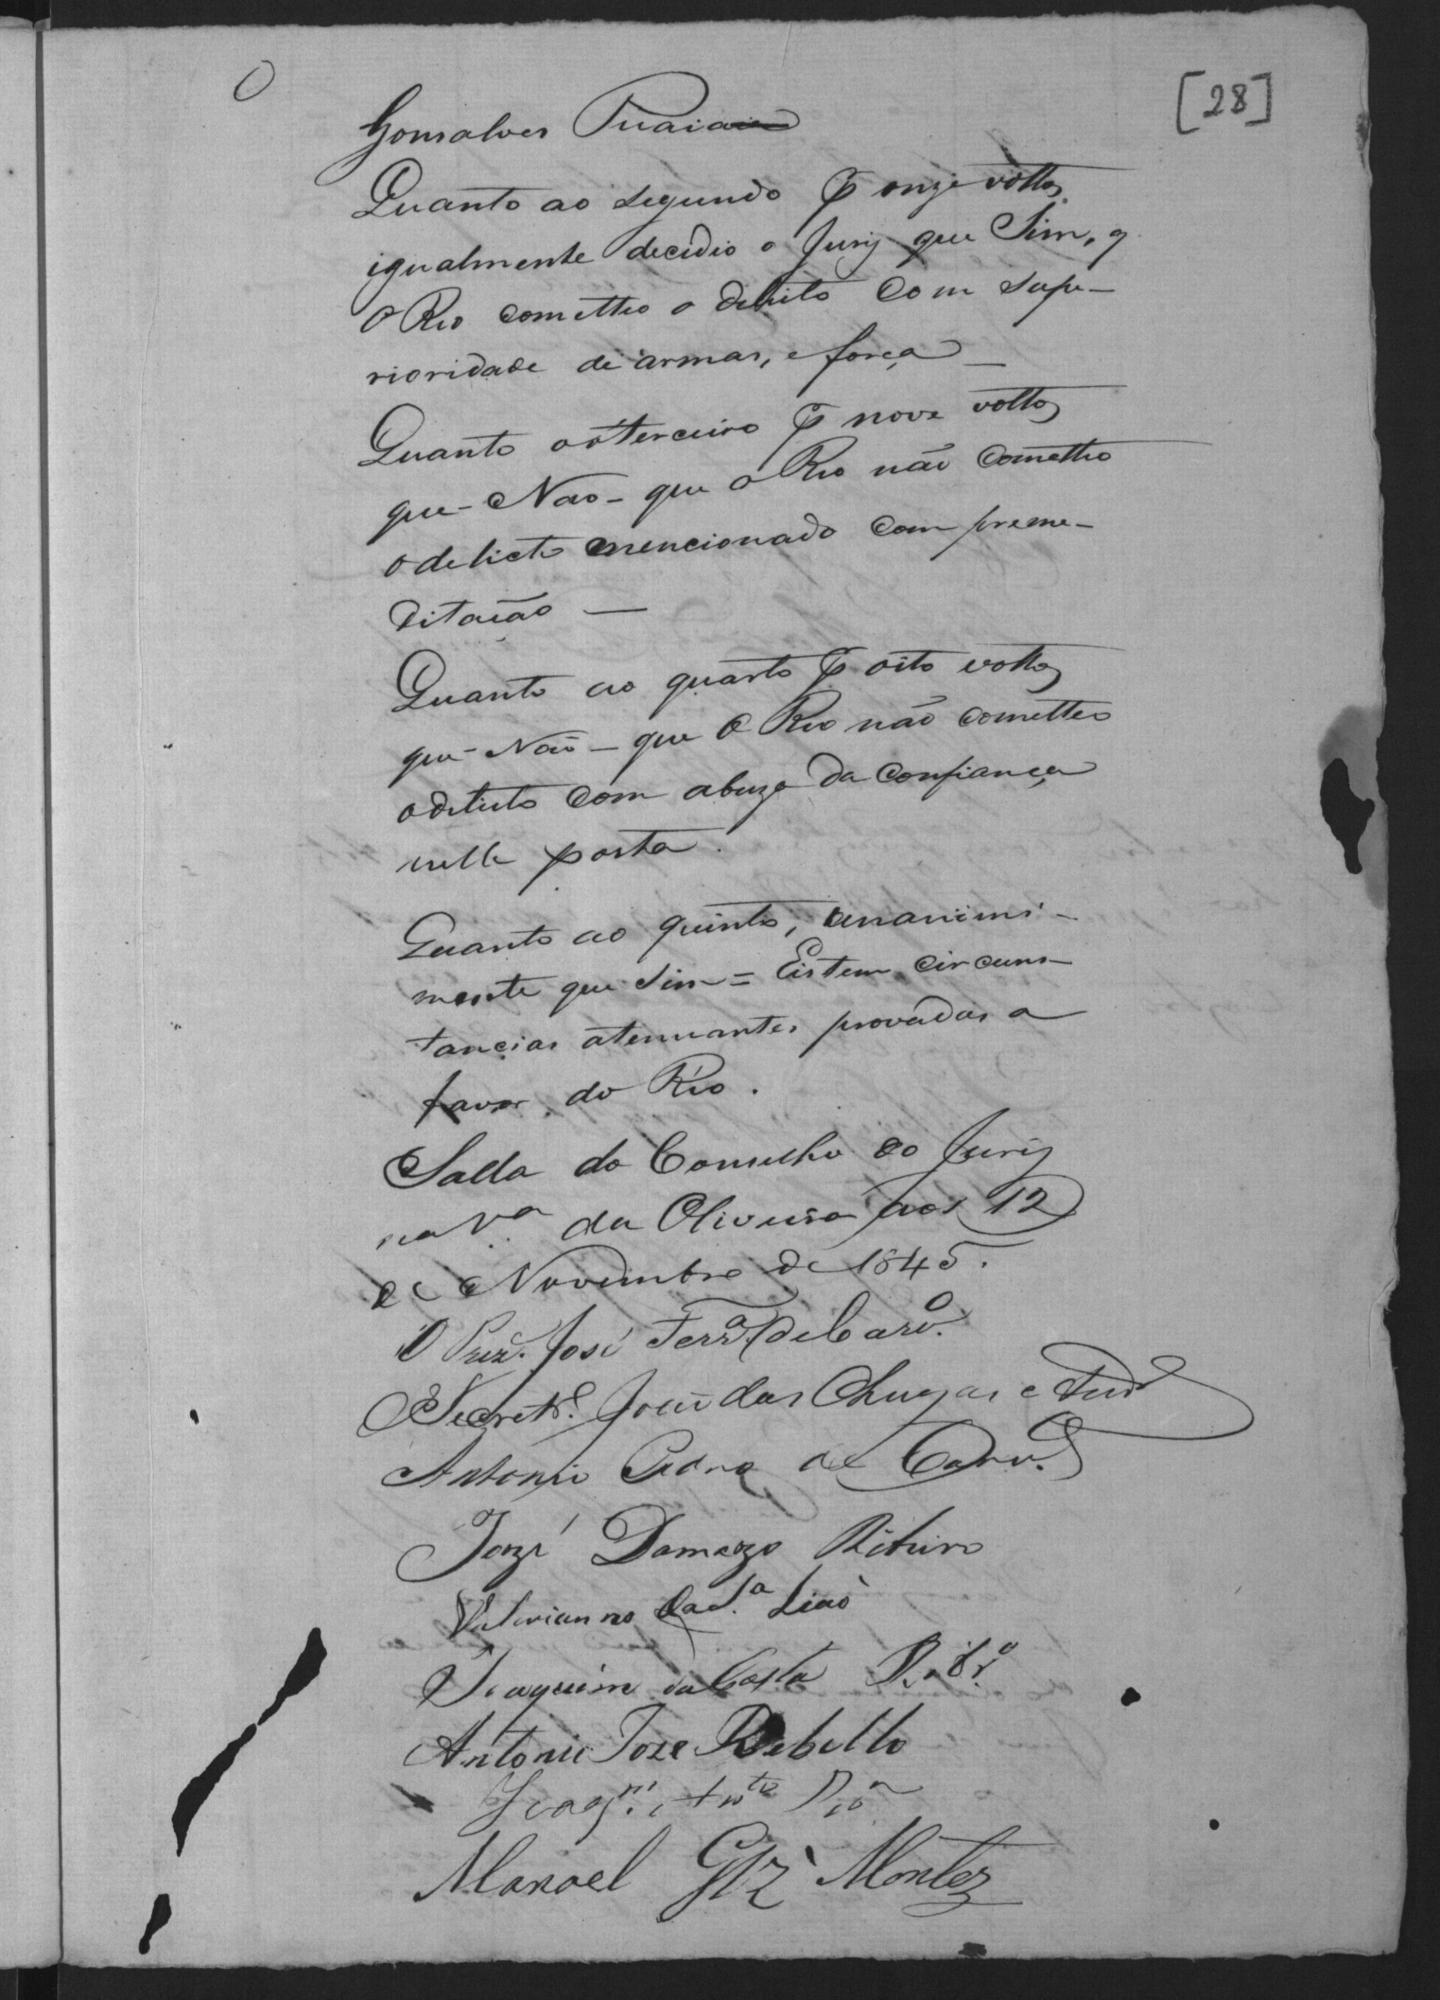 [28]
Gonsalves
Quanto ao segundo p onze vottos
igualmente decidio o Jury que Sim, q
O Reo cometteo o delicto com supe-
rioridade de armas, e força —
Quanto ao terceiro p nove vottos
que - Não - que o Reo não cometteo
o delicto mencionado com preme-
ditacão —
Quanto ao quarto p oito vottos
que - Não - que O Reo não cometteo
o delicto com abuzo da confiança
nelle posta.
Quanto ao quinto, unanimi-
mente que Sim = Eistem circuns-
tancias atenuantes provadas a
favor do Réo.
Salla do Conselho do Jury
na V.ª da Oliveira aos 12
de Novembro de 1845.
O Prez. José Ferrª. de Carvº.
Secretrº. João das Chagas e
Antonio Pedro de Carv.º
Jozé Damazo Ribeiro
Valerianno da S.ª Lião
Joaquim da Costa Ribrº
Antonio Joze Rebello
Joaqm.
Manoel Glz Montes